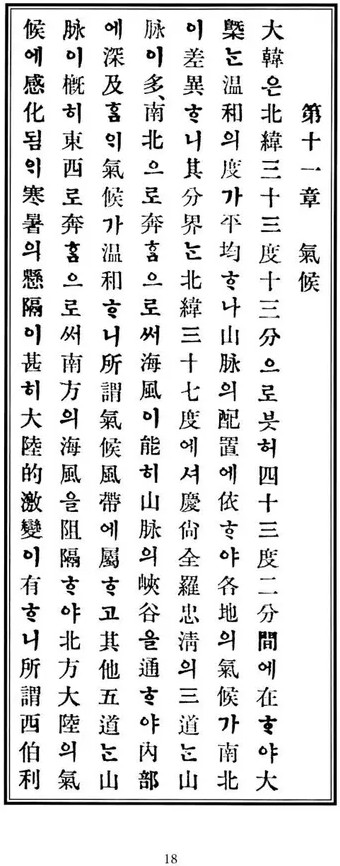 第十一章 氣候
大韓은北緯三十三度十三分으로븟허四十三度二分間에在ᄒᆞ야大
槩ᄂᆞᆫ温和의度가平均ᄒᆞ나山脈의配置에依ᄒᆞ야各地의氣候가南北
이差異ᄒᆞ니其分界ᄂᆞᆫ北緯三十七度에셔慶尙全羅忠淸의三道ᄂᆞᆫ山
脈이多、南北으로奔홈으로써海風이能히山脈의峽谷을通ᄒᆞ야內部
에深及홈ᄋᆡ氣候가温和ᄒᆞ니所謂氣候風帶에屬ᄒᆞ고其他五道ᄂᆞᆫ山
脈이槪히東西로奔홈으로써南方의海風을阻隔ᄒᆞ야北方大陸의氣
候에感化됨ᄋᆡ寒暑의懸隔이甚히大陸的激變이有ᄒᆞ니所謂西伯利
18